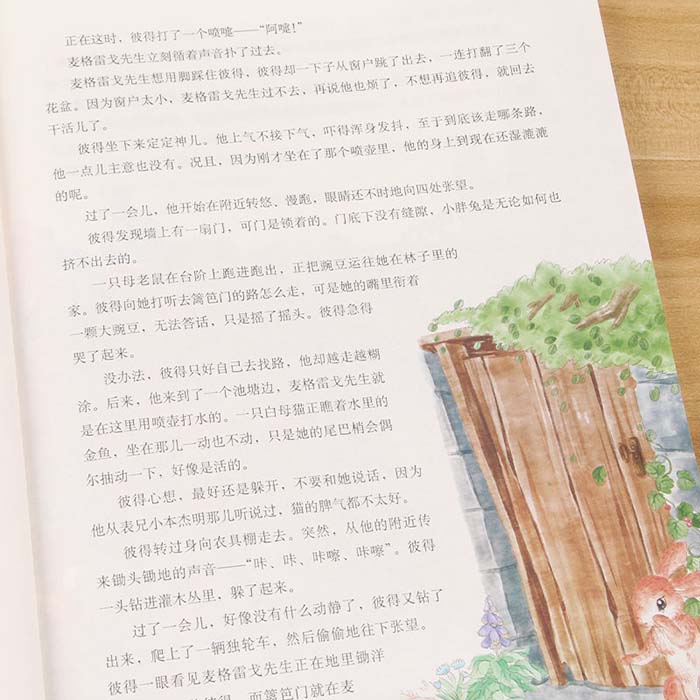 正在这时，彼得打了一个喷嚏——“阿嚏！”
麦格雷戈先生立刻循着声音扑了过去。
麦格雷戈先生想用脚踩住彼得，彼得却一下子从窗户跳了出去，一连打翻了三个
花盆。因为窗户太小，麦格雷戈先生过不去，再说他也烦了，不想再追彼得，就回去
干活儿了。
彼得坐下来定定神儿。他上气不接下气，吓得浑身发抖，至于到底该走哪条路，
他一点儿主意也没有。况且，因为刚才坐在了那个喷壶里，他的身上到现在还湿漉漉
的呢。
过了一会儿，他开始在附近转悠、慢跑，眼睛还不时地向四处张望。
彼得发现墙上有一扇门，可门是锁着的。门底下没有缝隙，小胖兔是无论如何也
挤不出去的。
一只母老鼠在台阶上跑进跑出，正把豌豆运往她在林子里的
家。彼得向她打听去篱笆门的路怎么走，可是她的嘴里衔着
一颗大豌豆，无法答话，只是摇了摇头。彼得急得
哭了起来。
没办法，彼得只好自己去找路，他却越走越糊
涂。后来，他来到了一个池塘边，麦格雷戈先生就
是在这里用喷壶打水的。一只白母猫正瞧着水里的
金鱼，坐在那儿一动也不动，只是她的尾巴梢会偶
尔抽动一下，好像是活的。
彼得心想，最好还是躲开，不要和她说话，因为
他从表兄小本杰明那儿听说过，猫的脾气都不太好。
彼得转过身向农具棚走去。突然，从他的附近传
来锄头锄地的声音——“咔、咔、咔嚓、咔嚓”。彼得
一头钻进灌木丛里，躲了起来。
过了一会儿，好像没有什么动静了，彼得又钻了
出来，爬上了一辆独轮车，然后偷偷地往下张望。
彼得一眼看见麦格雷戈先生正在地里锄洋
彼得，而篱笆门就在麦